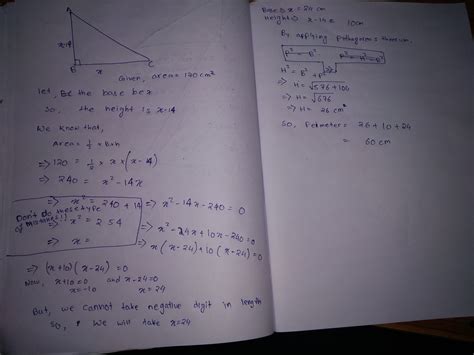 A
x-14
B
x
C
Given, area = 120 cm²
let, BC the base be x
So, the height is x-14
We know that,
Area = 1/2 × B×h
=> 120 = 1/2 × x × (x-14)
=> 240 = x² - 14x
=> x² = 240 + 14
=> x² = 254
=> x =
Don't do these type of mistakes!
=> x² - 14x - 240 = 0
=> x² - 24x + 10x - 240 = 0
=> x(x-24) + 10(x-24) = 0
=> (x+10)(x-24) = 0
Now, x+10=0 and x-24=0
x=-10 x=24
But, we cannot take negative digit in length
So, we will take x=24
Base => x = 24 cm
Height => x-14 = 10cm
By applying pythagoras theorem
H² = B² + P²
=> H = √576+100
=> H = √676
=> H = 26 cm
So, Perimeter = 26 + 10 + 24
= 60 cm